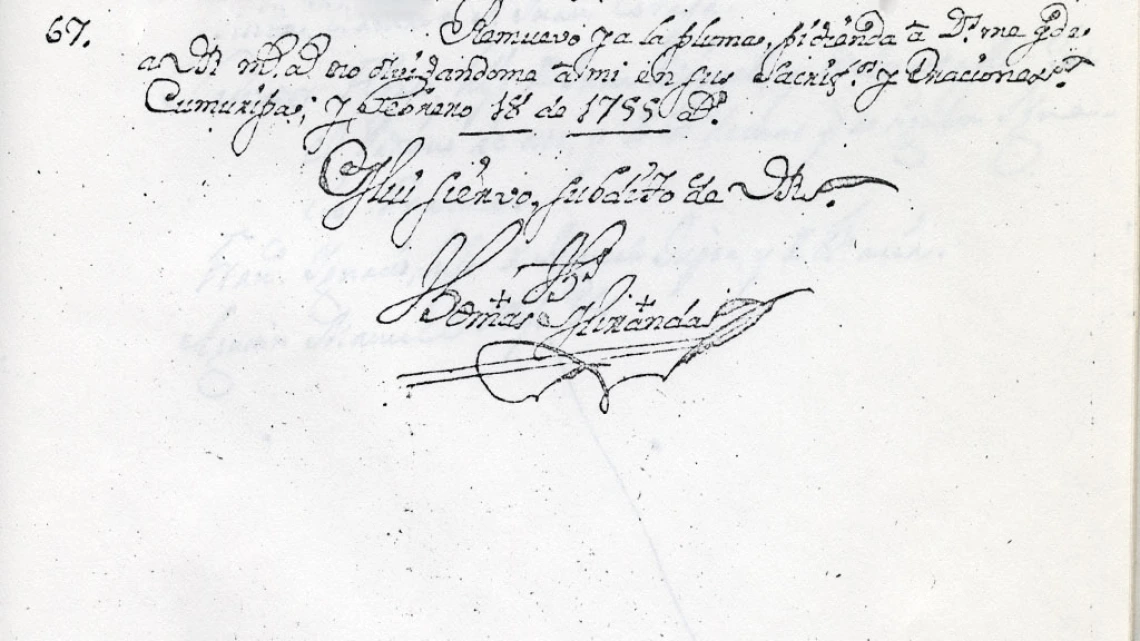 67. Remuevo ya la pluma, pidiendo â Ds. me gde
a VR ms. as. no olvidandome â mi en sus sacrifos. y Oraciones
Cumuripa; y Febrero 18 de 1755 as.
Mui siervo, subdito de VRa.
Hs
Thomas Miranda